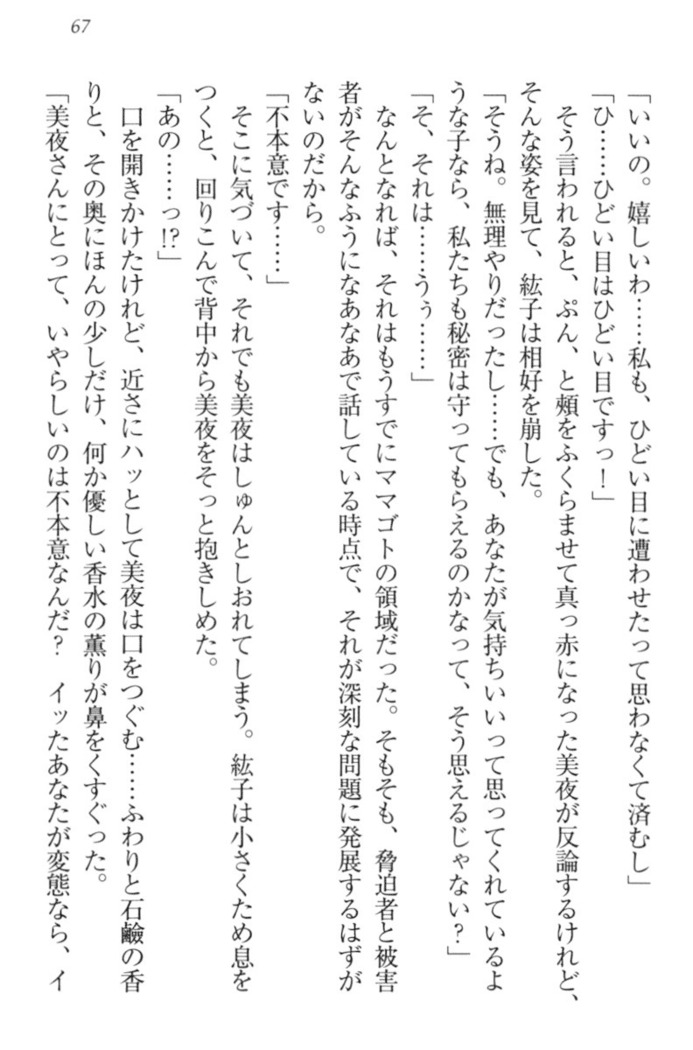 67
「いいの。嬉しいわ……私も、ひどい目に遭わせたって思わなくて済むし」
「ひ……ひどい目はひどい目ですっ！」
　そう言われると、ぷん、と頰をふくらませて真っ赤になった美夜が反論するけれど、
そんな姿を見て、紘子は相好を崩した。
「そうね。無理やりだったし……でも、あなたが気持ちいいって思ってくれているよ
うな子なら、私たちも秘密は守ってもらえるのかなって、そう思えるじゃない？」
「そ、それは……うぅ……」
　なんとなれば、それはもうすでにママゴトの領域だった。そもそも、脅迫者と被害
者がそんなふうになあなあで話している時点で、それが深刻な問題に発展するはずが
ないのだから。
「不本意です……」
　そこに気づいて、それでも美夜はしゅんとしおれてしまう。紘子は小さくため息を
つくと、回りこんで背中から美夜をそっと抱きしめた。
「あの……っ!?」
　口を開きかけたけれど、近さにハッとして美夜は口をつぐむ……ふわりと石鹼の香
りと、その奥にほんの少しだけ、何か優しい香水の薫りが鼻をくすぐった。
「美夜さんにとって、いやらしいのは不本意なんだ？　イッたあなたが変態なら、イ